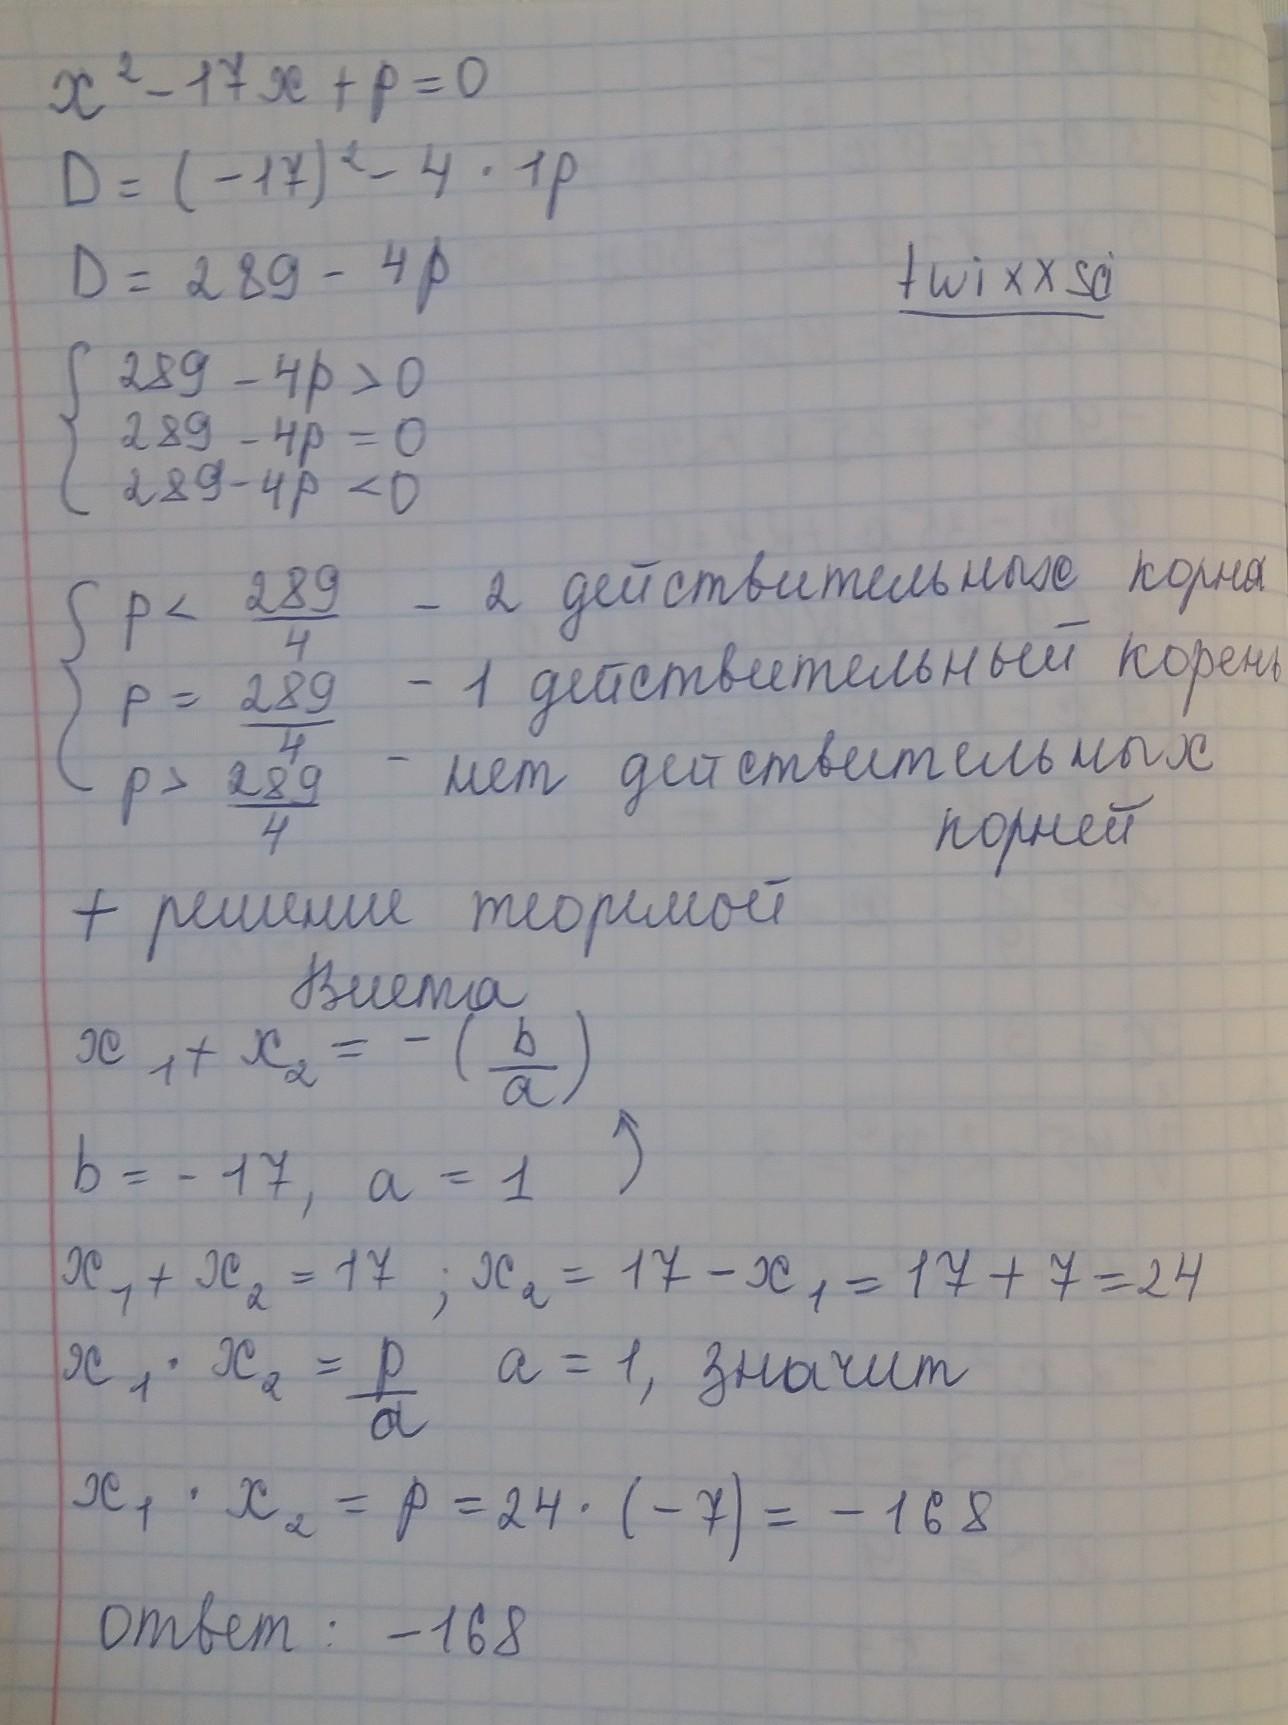 x² - 17x + p = 0
D = (-17)² - 4 · 1p
D = 289 - 4p
twixxsa
{ 289 - 4p > 0
289 - 4p = 0
289 - 4p < 0
{ p < 289/4 - 2 действительных корня
p = 289/4 - 1 действительный корень
p > 289/4 - нет действительных
корней
+ решение теоремой
Виета
x₁ + x₂ = - (b/a)
b = -17, a = 1
x₁ + x₂ = 17 ; x₂ = 17 - x₁ = 17 + 7 = 24
x₁ · x₂ = p/a a = 1, значит
x₁ · x₂ = p = 24 · (-7) = -168
ответ: -168